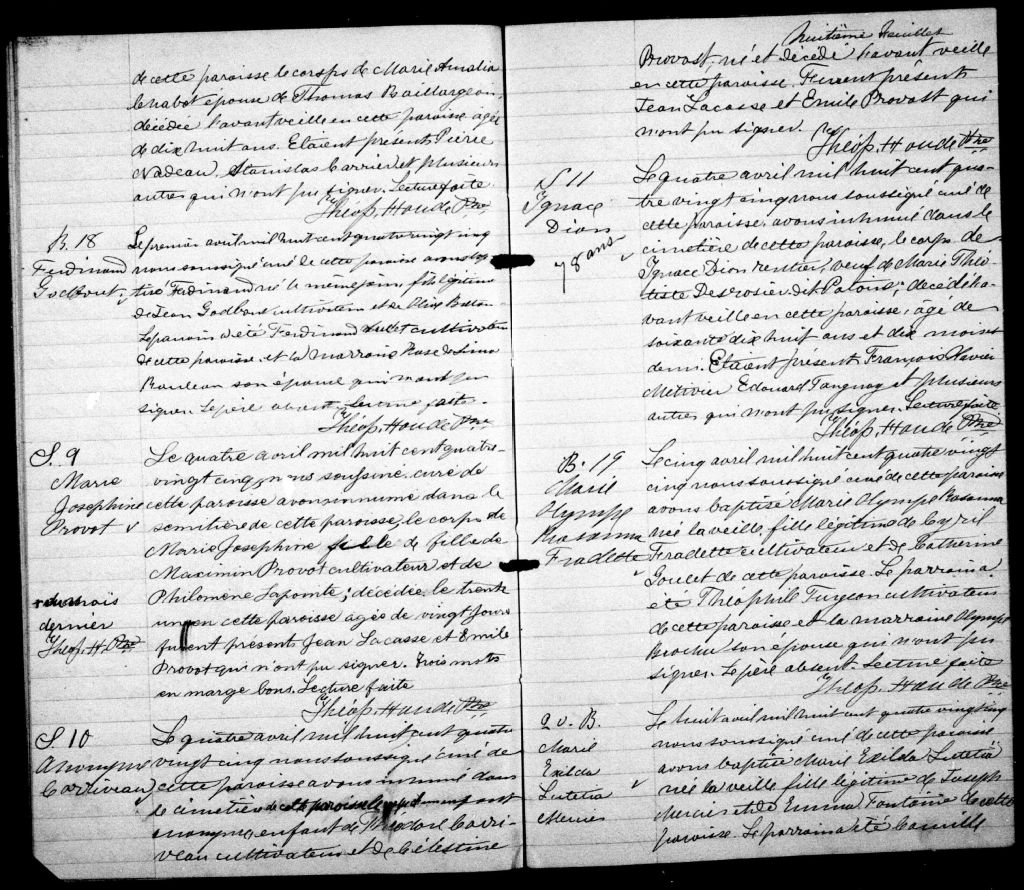 de cette paroisse le corsps de Marie Amalia
Chabot épouse de Thomas Baillargeon,
décédée l'avant veille en cette paroisse, agée
de dix huit ans. Etaient présents Pierre
Nadeau, Stanislas Carrier et plusieurs
autres qui n'ont pu signer. Lecture faite
Théop. Houde Ptre
B. 18
Ferdinand
Godbout
Le premier avril mil huit cent quatre vingt cinq
nous soussigné curé de cette paroisse avons bap
tisé Ferdinand né le même jour, fils légitime
de Jean Godbout cultivateur et de
Le parrain a été Ferdinand cultivateur
de cette paroisse et la marraine Rose de Lima
son épouse qui n'ont pu
signer. Le père absent. Lecture faite.
Théop. Houde Ptre
S. 9
Marie
Josephine
Provot
Le quatre avril mil huit cent quatre
vingt cinq nous soussiné, curé de
cette paroisse avons innumé dans le
semitière de cette paroisse, le corps de
Marie Josephine fille de fille de
Maximin Provot cultivateur et de
Philomène Lapointe; décédée, le trente
un en cette paroisse agée de vingt jours
furent présents Jean Lacasse et Emile
Provot qui n'ont pu signer. Trois mots
en marge bons. Lecture faite
Théop. Houde Ptre
+ du mois
dernier
Théop. H. Ptre
S. 10
Anonyme
Corriveau
Le quatre avril mil huit cent quatre
vingt cinq nous soussigné curé de
cette paroisse avons inhumé dans
le cimetière de cette paroisse le corps d'un enfant
anonyme, enfant de Théodore Corri-
veau cultivateur et de Célestine
huitième feuillet
Provost, né et décédé l'avant veille
en cette paroisse. Furent présents
Jean Lacasse et Emile Provost qui
n'ont pu signer.
Théop. Houde Ptre
S 11
Ignace
Dion
78 ans
Le quatre avril mil huit cent qua-
tre vingt cinq nous soussigné curé de
cette paroisse, avons inhumé dans le
cimetière de cette paroisse, le corps de
Ignace Dion rentier, veuf de Marie Théo
tiste Desrosier dit Patois; décédé l'a-
vant veille en cette paroisse, âgé de
soixante dix huit ans et dix mois et
demi. Etaient présent François Xavier
Métivier Edouard Tanguay et plusieurs
autres qui n'ont pu signer. Lecture faite
Théop. Houde Ptre
B. 19
Marie
Olympe
Rosanna
Fradette
Le cinq avril mil huit cent quatre vingt
cinq nous soussigné curé de cette paroisse
avons baptisé Marie Olympe Rosanna
née la veille, fille légitime de Cyril
Fradette cultivateur et de Catherine
Goulet de cette paroisse. Le parrain a
été Théophile Turgeon cultivateur
de cette paroisse et la marraine Olympe
son épouse qui n'ont pu
signer. Le père absent. Lecture faite
Théop. Houde Ptre
20. B.
Marie
Exilda
Lutetia
Mercier
Le huit avril mil huit cent quatre vingt cinq
nous soussigné curé de cette paroisse
avons baptisé Marie Exilda Lutetia
née la veille fille légitime de Joseph
Mercier et de Emma Fontaine de cette
paroisse. Le parrain a été Camille